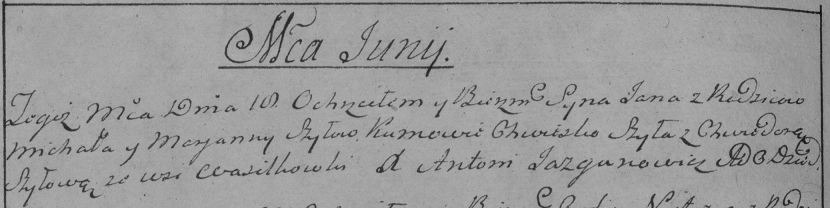 Mca Junij.
Tegoż Mca Dnia 18. Ochrzciłem y Bierzm Syna Jana z Rodziców
Michała y Maryanny Szyłow. Kumowie Chwiedko Szyła z Chwedorą
Szyłową ze wsi Wasilkowki X Antoni Jazgunowicz